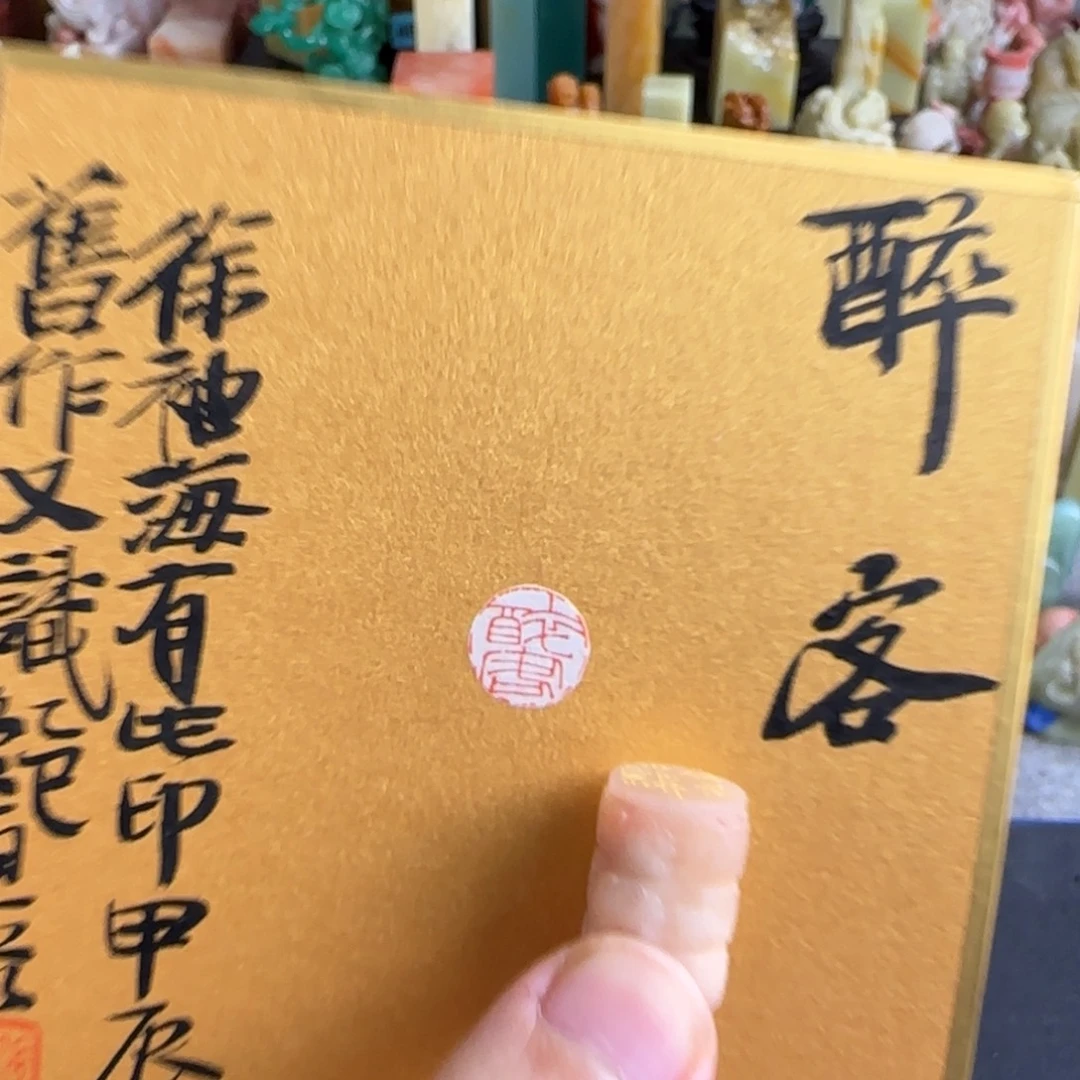 醉客
徐袖海有此印甲辰
舊作又識記